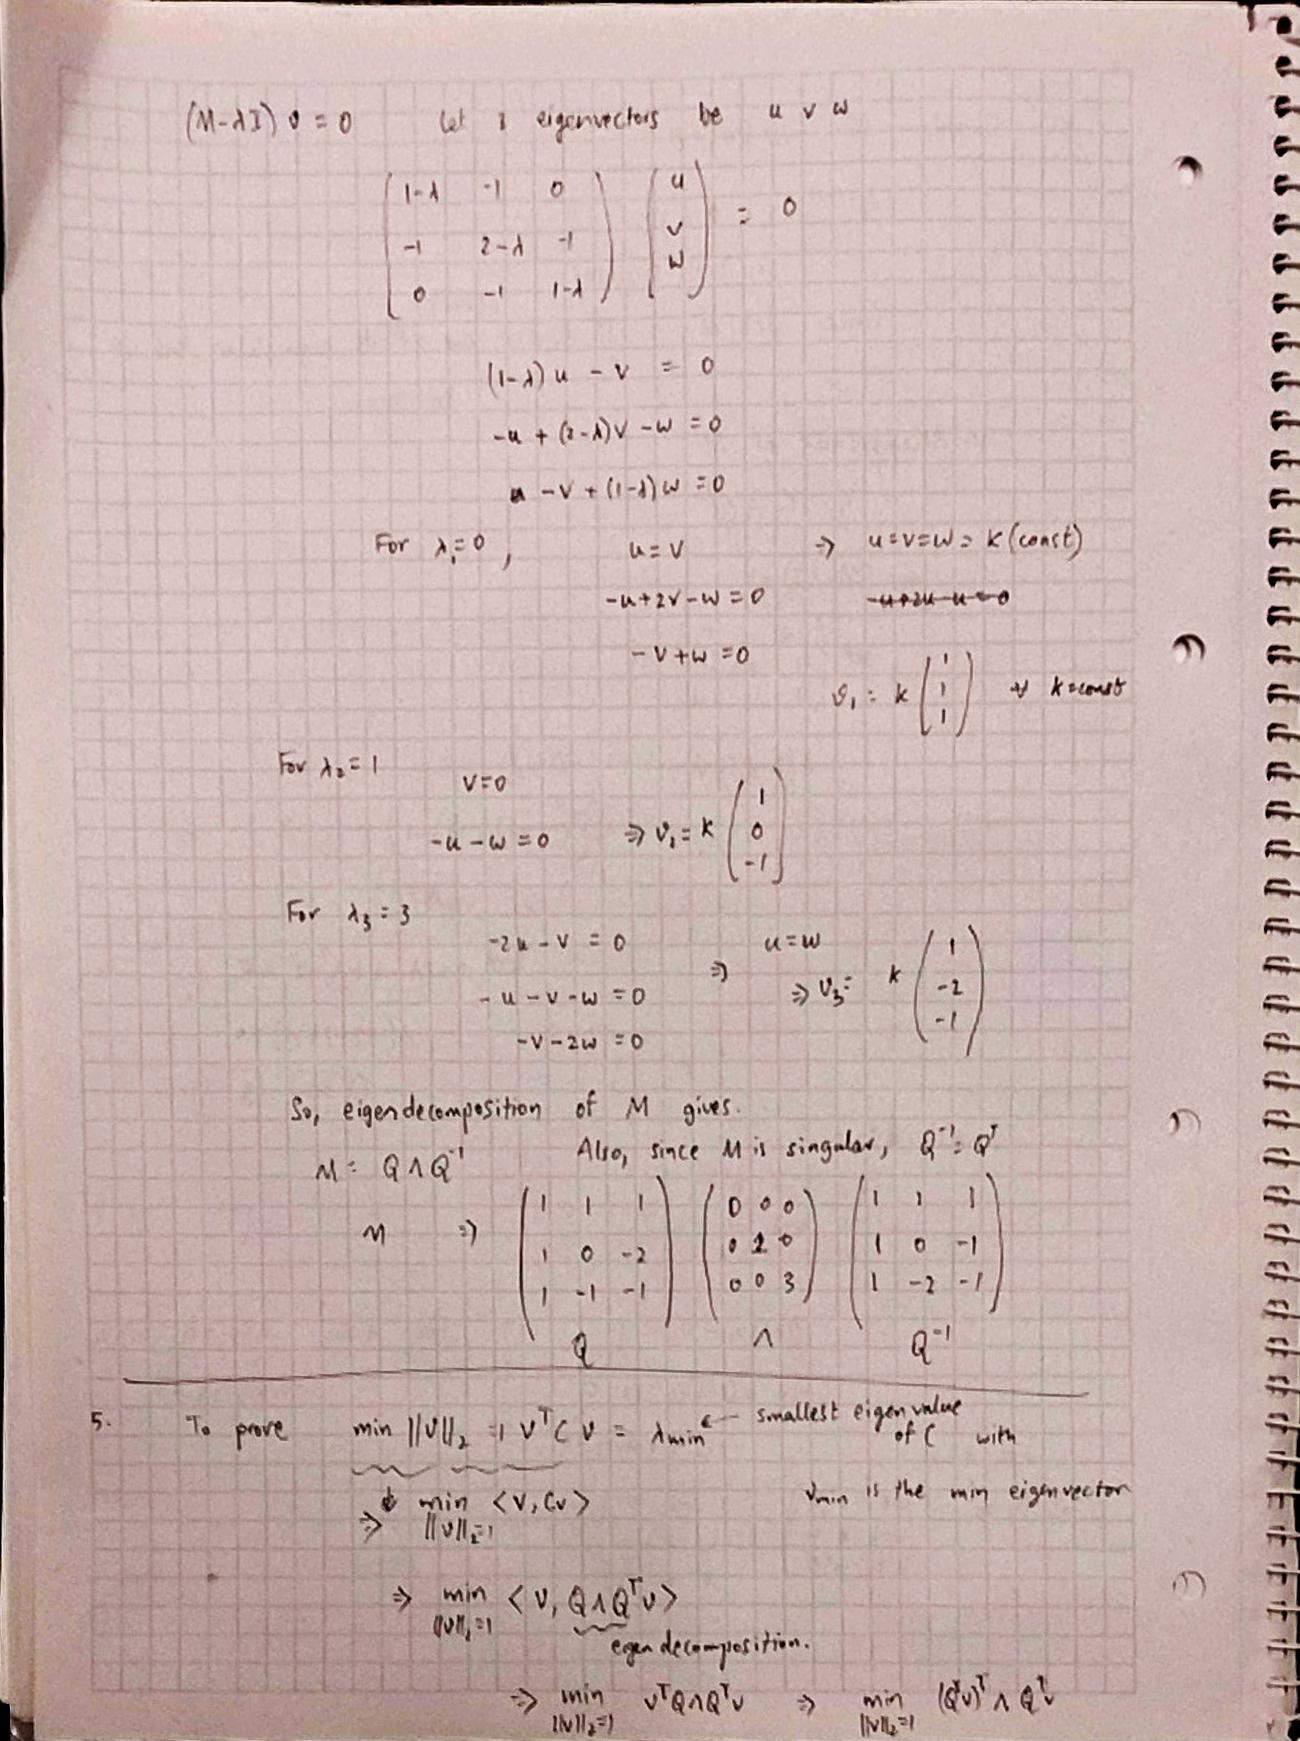 (M-λI) v = 0 Let 3 eigenvectors be u v w
( 1-λ -1 0 ) ( u )
( -1 2-λ -1 ) ( v ) = 0
( 0 -1 1-λ ) ( w )
(1-λ) u - v = 0
-u + (2-λ)v - w = 0
- v + (1-λ) w = 0
For λ₁=0, u=v ⇒ u=v=w= k (const)
-u+2v-w=0 -u+2u-u=0
-v+w=0
v₁ = k ( 1 1 1 ) ∀ k=const
For λ₂=1
v=0
-u-w=0 ⇒ v₂= k ( 1 0 -1 )
For λ₃=3
-2u-v = 0 u=w
-u-v-w=0 ⇒ ⇒ v₃= k ( 1 -2 -1 )
-v-2w=0
So, eigendecomposition of M gives.
M= QΛQ⁻¹ Also, since M is singular, Q⁻¹=Qᵀ
( 1 1 1 ) ( 0 0 0 ) ( 1 1 1 )
M ⇒ ( 1 0 -2 ) ( 0 1 0 ) ( 1 0 -1 )
( 1 -1 -1 ) ( 0 0 3 ) ( 1 -2 -1 )
Q Λ Q⁻¹
5. To prove min ||v||₂ =1 vᵀC v = λmin ← smallest eigenvalue of C with
vmin is the min eigenvector
⇒ min ||v||₂=1 <v, Cv>
⇒ min ||v||₂=1 <v, QΛQᵀv>
eigendecomposition.
⇒ min ||v||₂=1 vᵀQΛQᵀv ⇒ min ||v||₂=1 (Qᵀv)ᵀ Λ Qᵀv